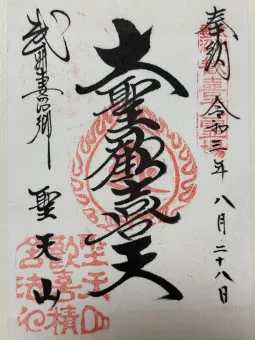 奉納 令和三年八月二十八日
大聖歓喜天
武州妻沼郷
聖天山